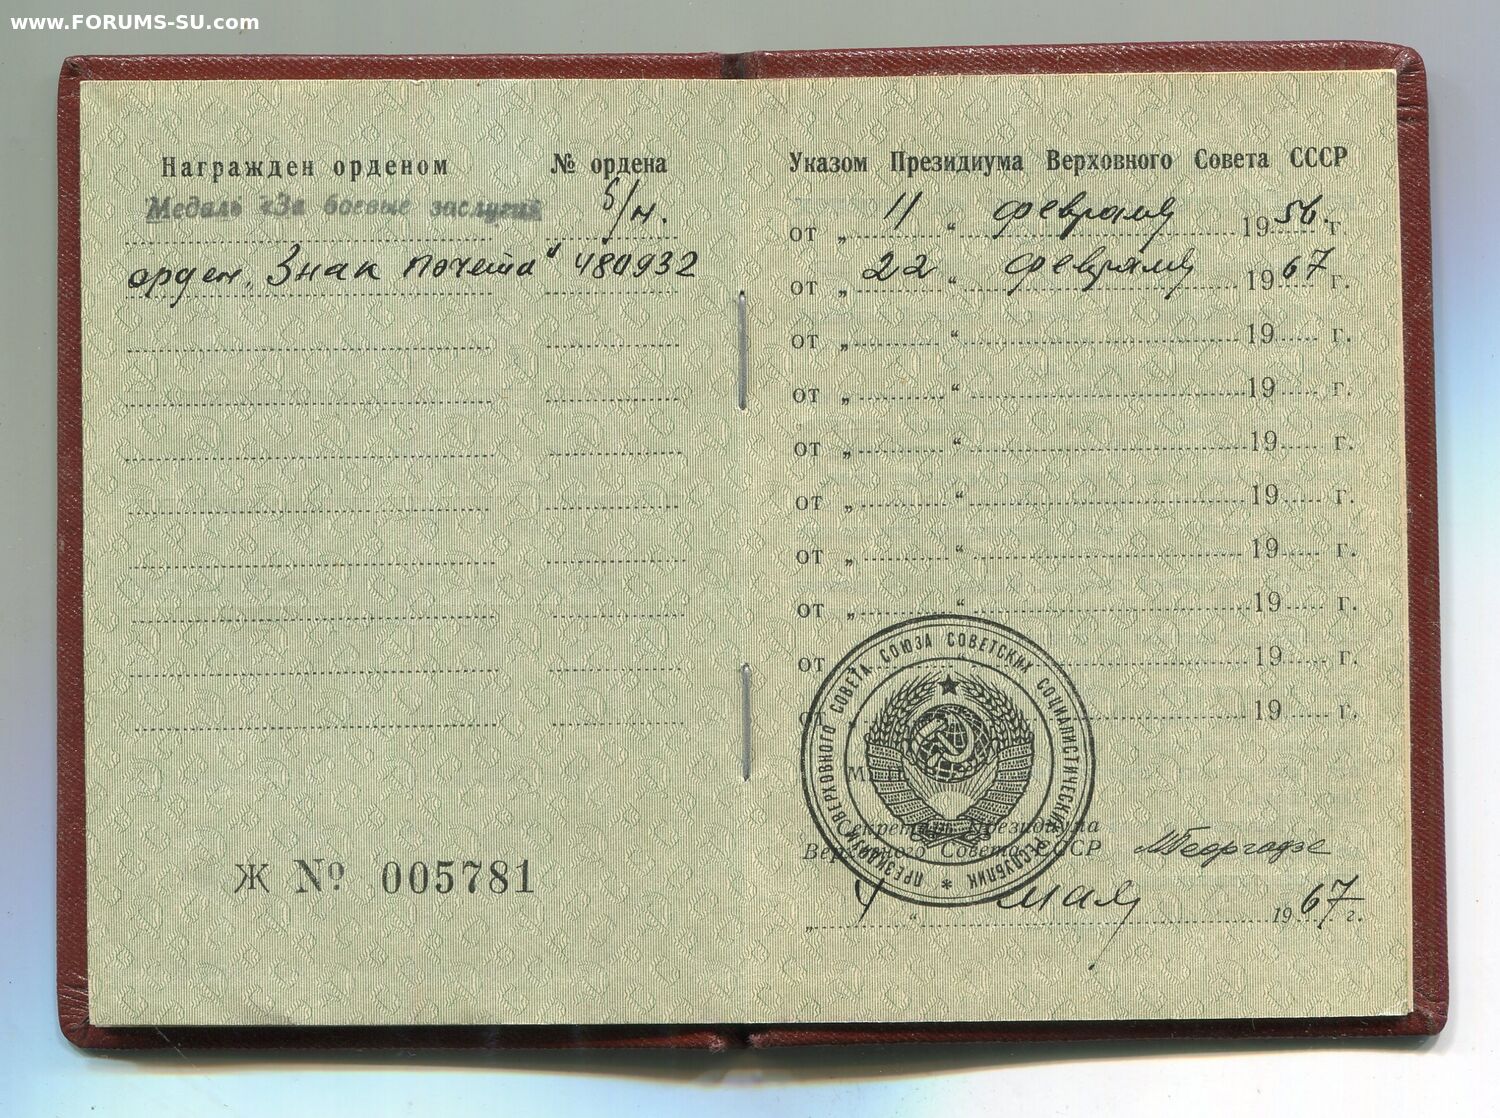 www.FORUMS-SU.com
Награжден орденом № ордена
Медаль «За боевые заслуги» б/н.
орден „Знак почета“ 480932
Ж № 005781
Указом Президиума Верховного Совета СССР
от „ 11 “ февраля 1956. г.
от „ 22 “ февраля 1967 г.
от „ “ 19 г.
от „ “ 19 г.
от „ “ 19 г.
от „ “ 19 г.
от „ “ 19 г.
от „ “ 19 г.
от 19 г.
от 19 г.
М. П.
Секретарь Президиума
Верховного Совета СССР МГеоргадзе
„ 4 “ мая 1967 г.
ПРЕЗИДИУМ ВЕРХОВНОГО СОВЕТА СОЮЗА СОВЕТСКИХ СОЦИАЛИСТИЧЕСКИХ РЕСПУБЛИК *